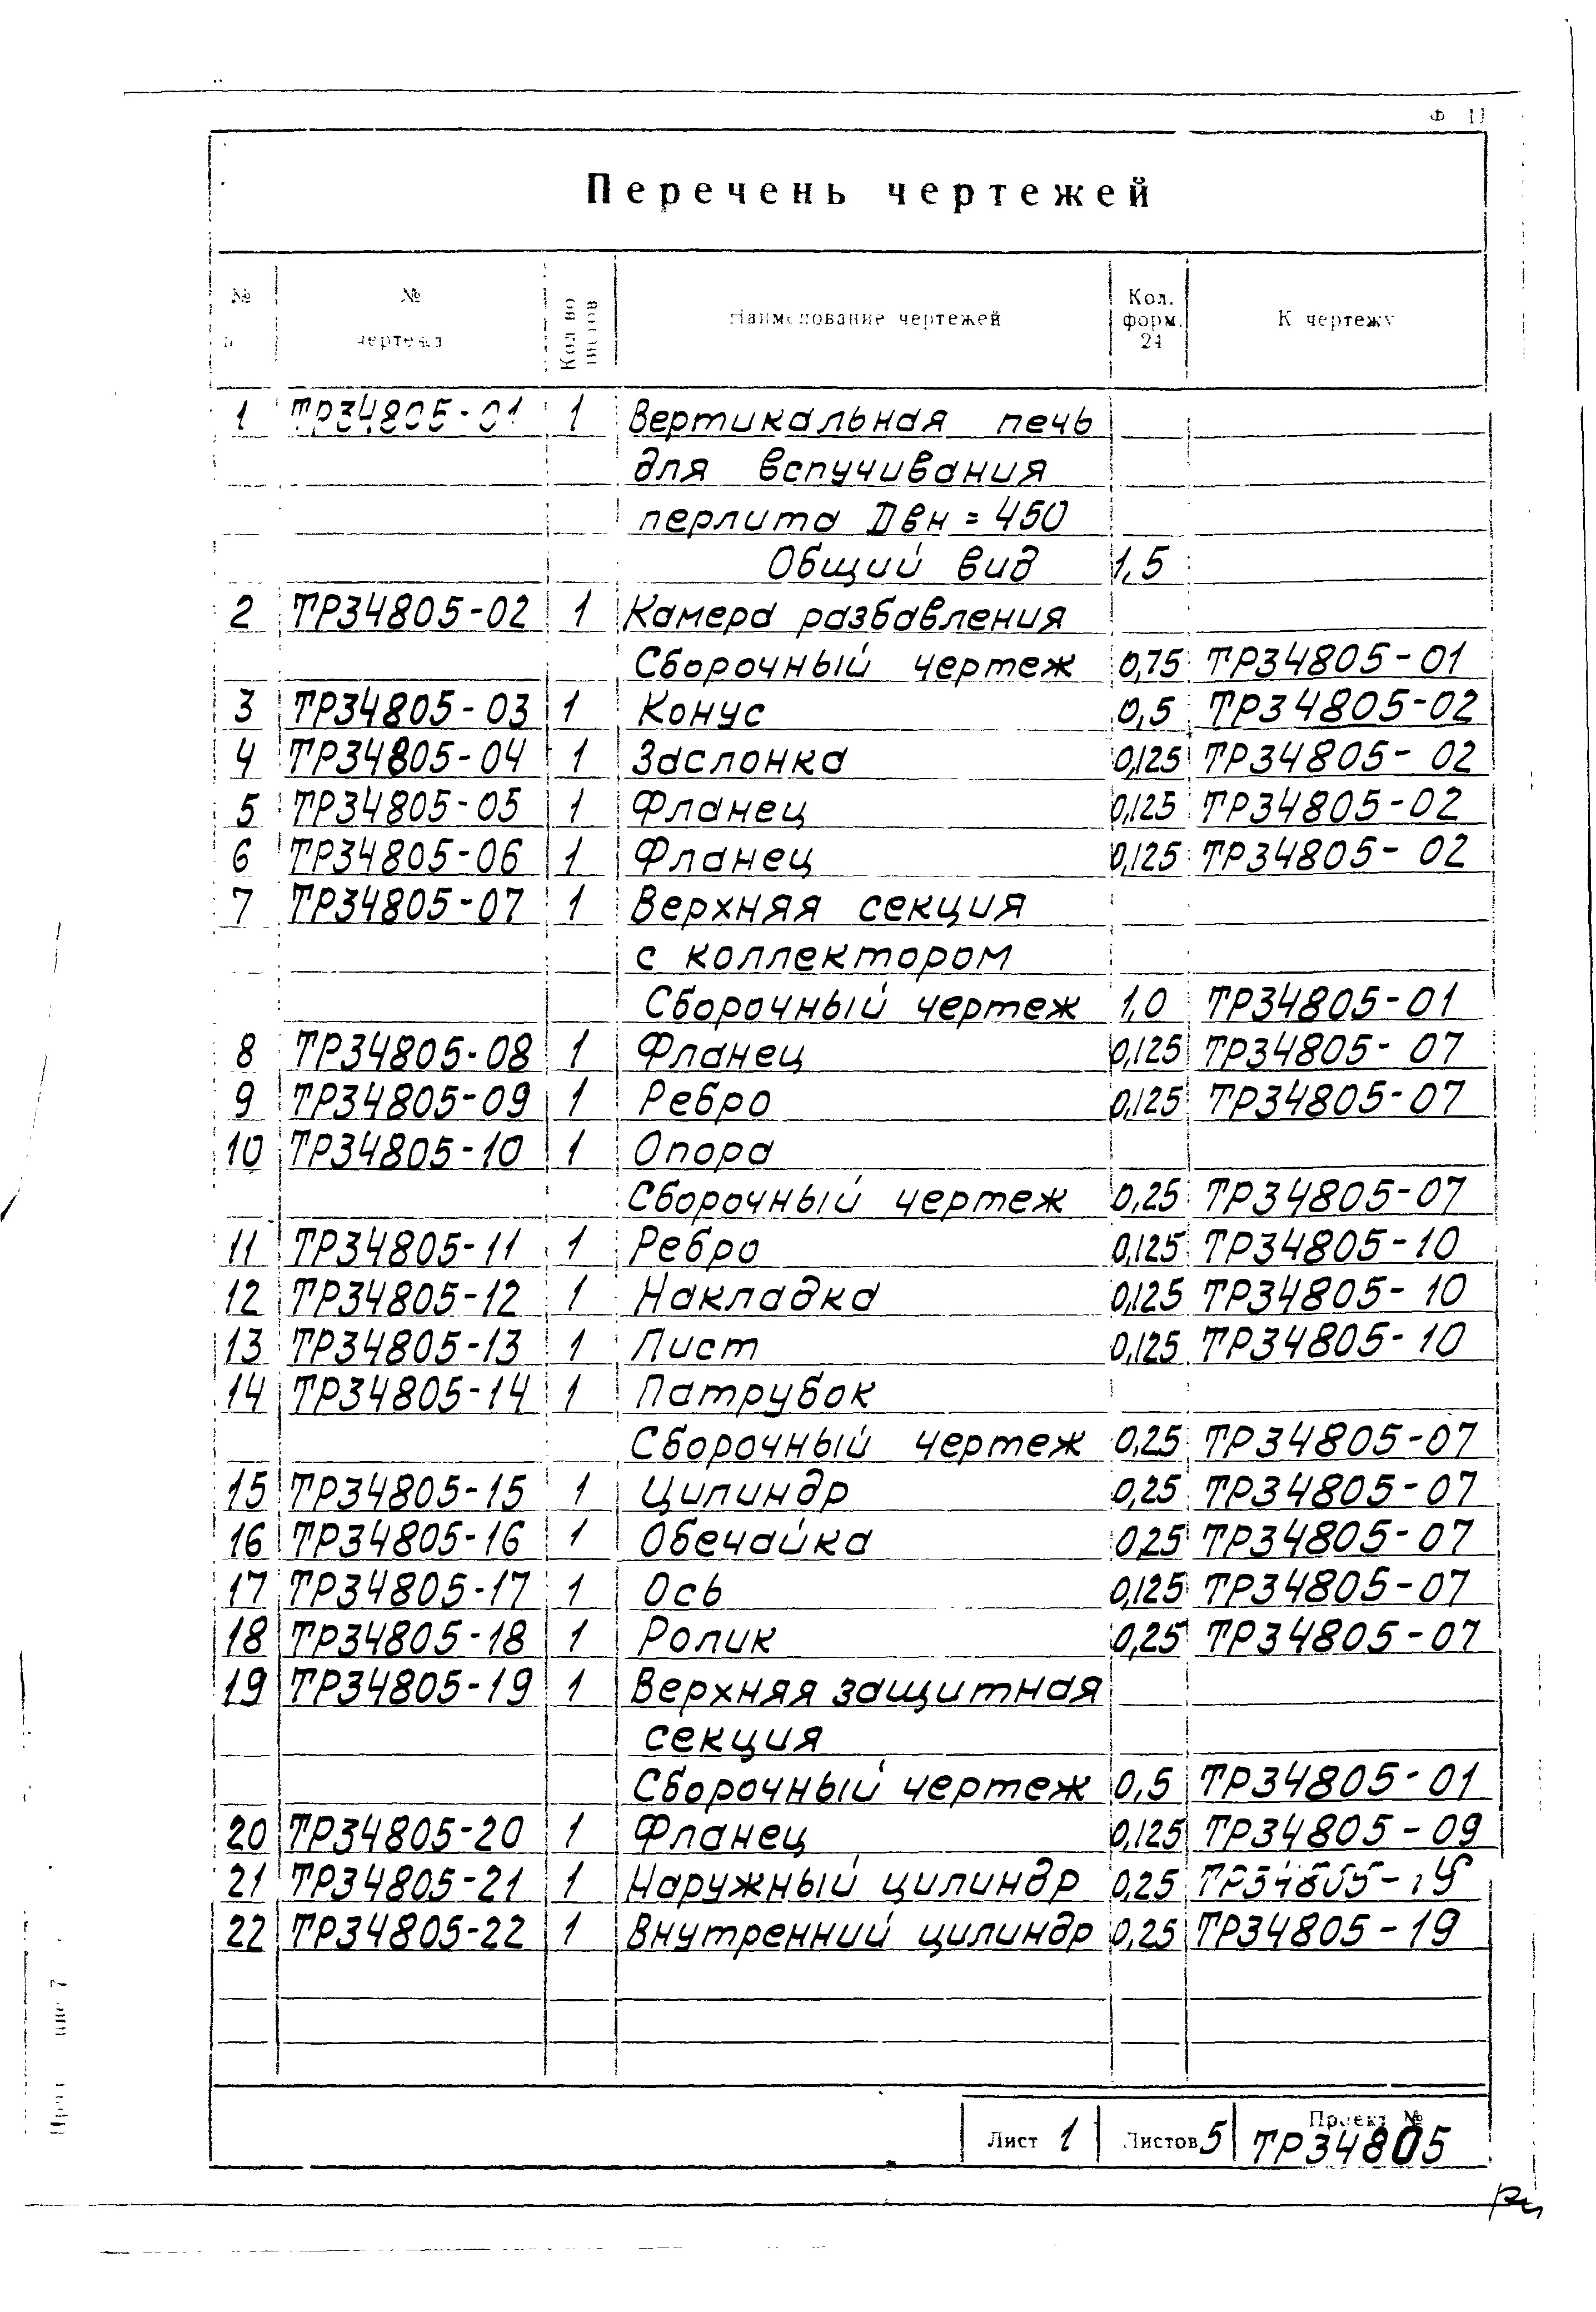 Ф 11
Перечень чертежей
№ № чертежа Кол во листов Наименование чертежей Кол. форм. 24 К чертежу
1 ТР34805-01 1 Вертикальная печь
для вспучивания
перлита Dвн = 450
Общий вид 1,5
2 ТР34805-02 1 Камера разбавления
Сборочный чертеж 0,75 ТР34805-01
3 ТР34805-03 1 Конус 0,5 ТР34805-02
4 ТР34805-04 1 Заслонка 0,125 ТР34805-02
5 ТР34805-05 1 Фланец 0,125 ТР34805-02
6 ТР34805-06 1 Фланец 0,125 ТР34805-02
7 ТР34805-07 1 Верхняя секция
с коллектором
Сборочный чертеж 1,0 ТР34805-01
8 ТР34805-08 1 Фланец 0,125 ТР34805-07
9 ТР34805-09 1 Ребро 0,125 ТР34805-07
10 ТР34805-10 1 Опора
Сборочный чертеж 0,25 ТР34805-07
11 ТР34805-11 1 Ребро 0,125 ТР34805-10
12 ТР34805-12 1 Накладка 0,125 ТР34805-10
13 ТР34805-13 1 Лист 0,125 ТР34805-10
14 ТР34805-14 1 Патрубок
Сборочный чертеж 0,25 ТР34805-07
15 ТР34805-15 1 Цилиндр 0,25 ТР34805-07
16 ТР34805-16 1 Обечайка 0,25 ТР34805-07
17 ТР34805-17 1 Ось 0,125 ТР34805-07
18 ТР34805-18 1 Ролик 0,25 ТР34805-07
19 ТР34805-19 1 Верхняя защитная
секция
Сборочный чертеж 0,5 ТР34805-01
20 ТР34805-20 1 Фланец 0,125 ТР34805-09
21 ТР34805-21 1 Наружный цилиндр 0,25 ТР34805-19
22 ТР34805-22 1 Внутренний цилиндр 0,25 ТР34805-19
Лист 1 Листов 5 Проект №
ТР34805